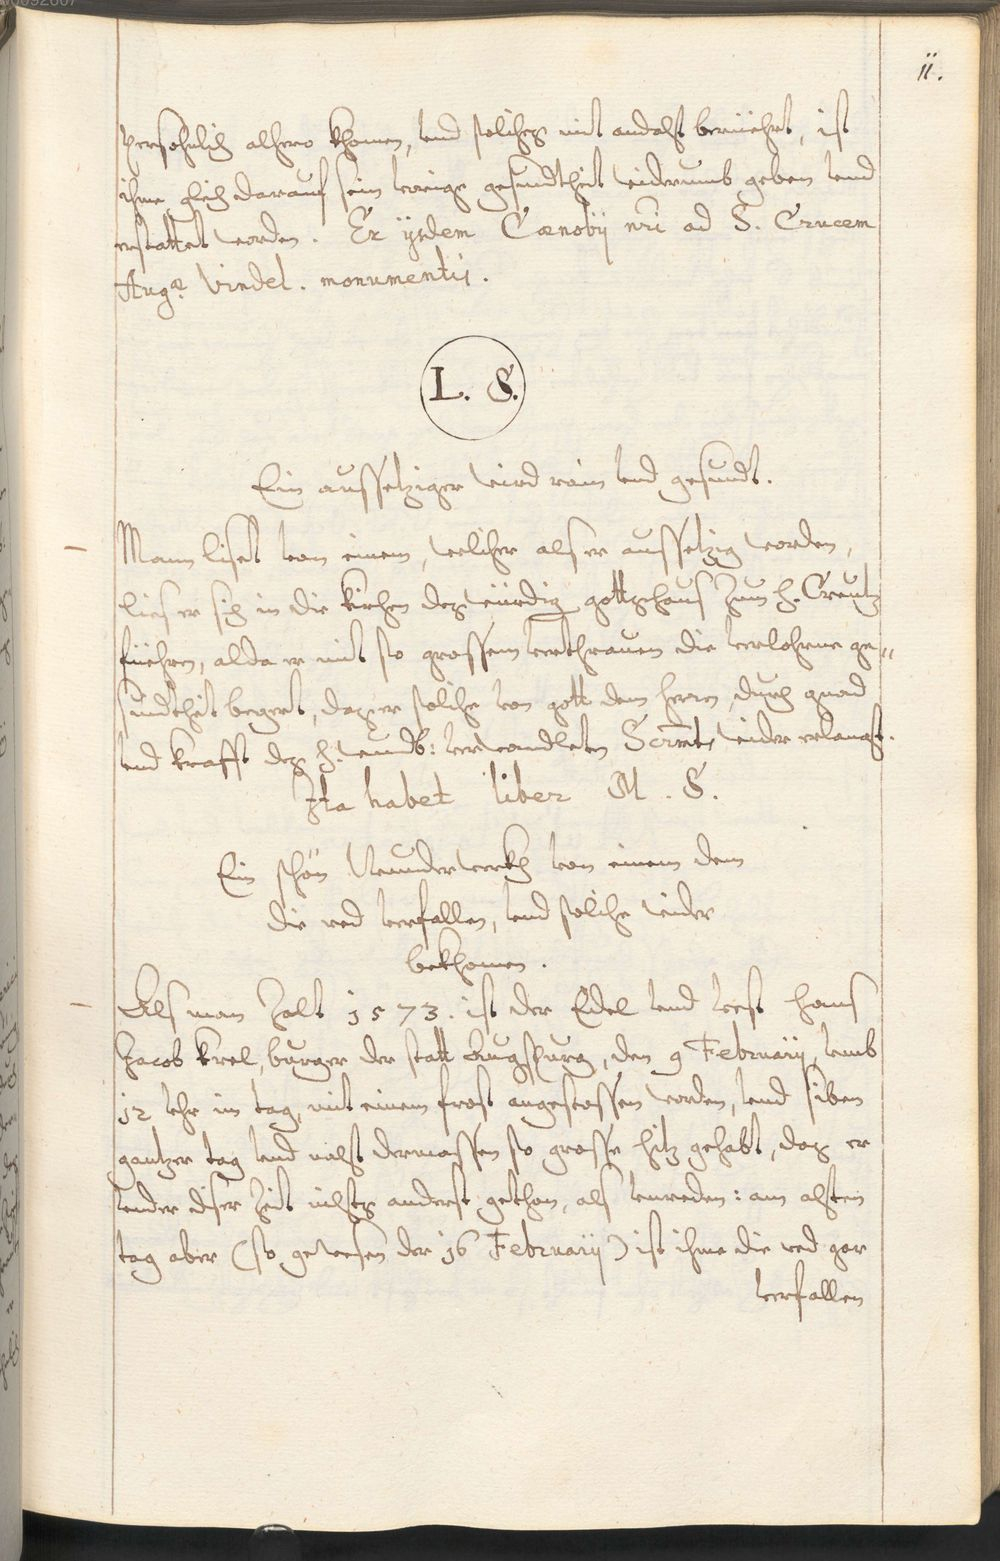 11.
Persohnlich alhero khomen, vnd solches mit andaht berüehrt, ist
ihme gleich darauf sein vorige gesundtheit widerumb geben vnd
erstattet worden. Ex ijsdem Cœnobij nri ad S. Crucem
Augæ Vindel. monumentis.
L. S.
Ein aussetziger wird rain vnd gesundt.
Mann liset von einem, welicher als er aussetzig worden,
lies er sich in die kirchen des würdig gottshaus zum h. Creutz
füehren, alda er mit so grossem vertrauen die verlohrne ge„
sundtheit begert, das er solche von gott dem herrn, durch gnad
vnd krafft des h. wund: verwandleten Scrmts wider erlangt.
Ita habet liber M. S.
Ein schön Wunderwerkh von einem dem
die red verfallen, vnd solche wider
bekhomen.
Als man zalt 1573. ist der Edel vnd vest Hans
Jacob Krel, burger der statt Augspurg, den 9 Februarij, vmb
12 Vhr im tag, mit einem frost angestossen worden, vnd siben
gantzer tag vnd naht dermassen so grosse hitz gehabt, das er
vnder diser zeit nichts anderst gethon, als vnreden: am ahten
tag aber (so gewesen der 16 Februarij) ist ihme die red gar
verfallen